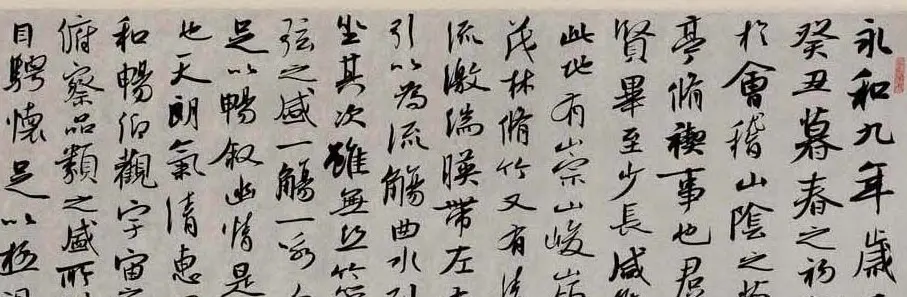 永和九年歲
癸丑暮春之初
於會稽山陰之蘭
亭脩禊事也君
賢畢至少長咸
此地有山崇山峻嶺
茂林脩竹又有清
流激湍暎帶左
引以為流觴曲水列
坐其次雖無絲竹管
弦之盛一觴一詠
足以暢敘幽情是
也天朗氣清惠
和暢仰觀宇宙之
俯察品類之盛所
目騁懷足以極視